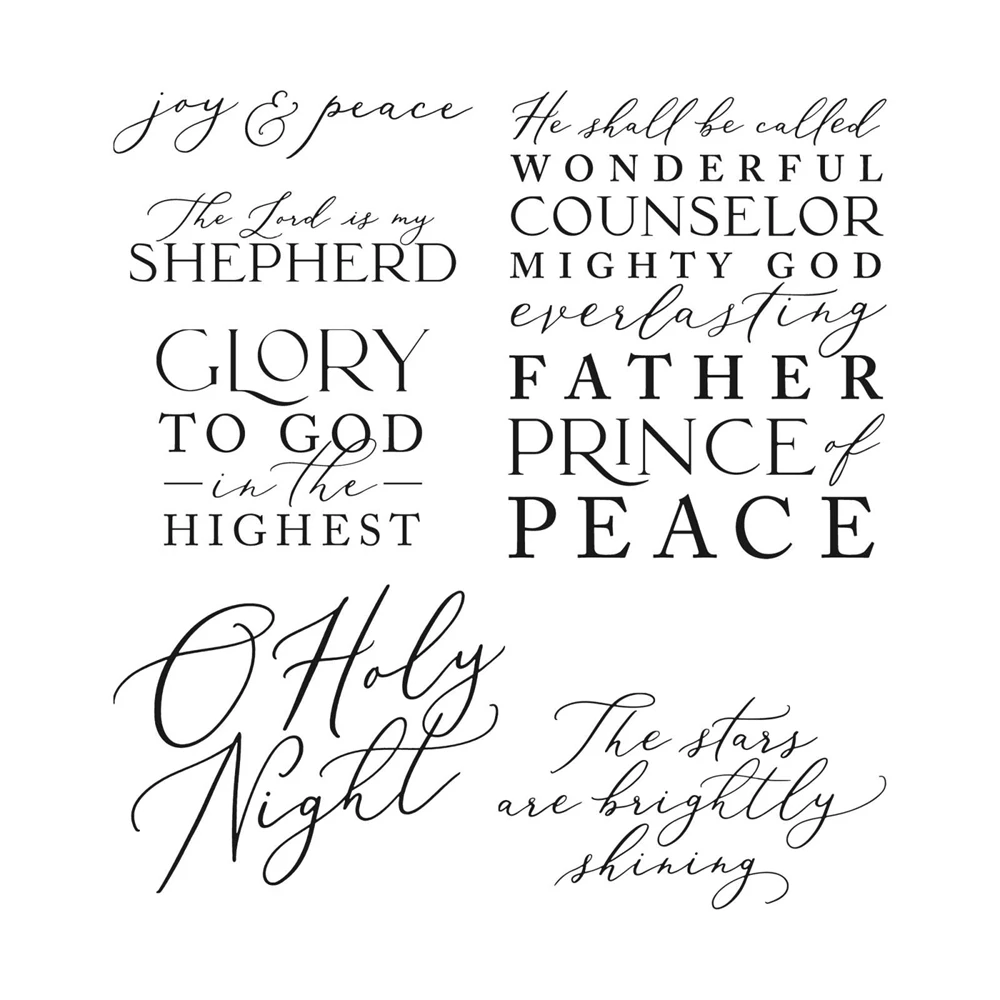 joy & peace
The Lord is my
SHEPHERD
GLORY
TO GOD
in the
HIGHEST
He shall be called
WONDERFUL
COUNSELOR
MIGHTY GOD
everlasting
FATHER
PRINCE of
PEACE
O Holy
Night
The stars
are brightly
shining